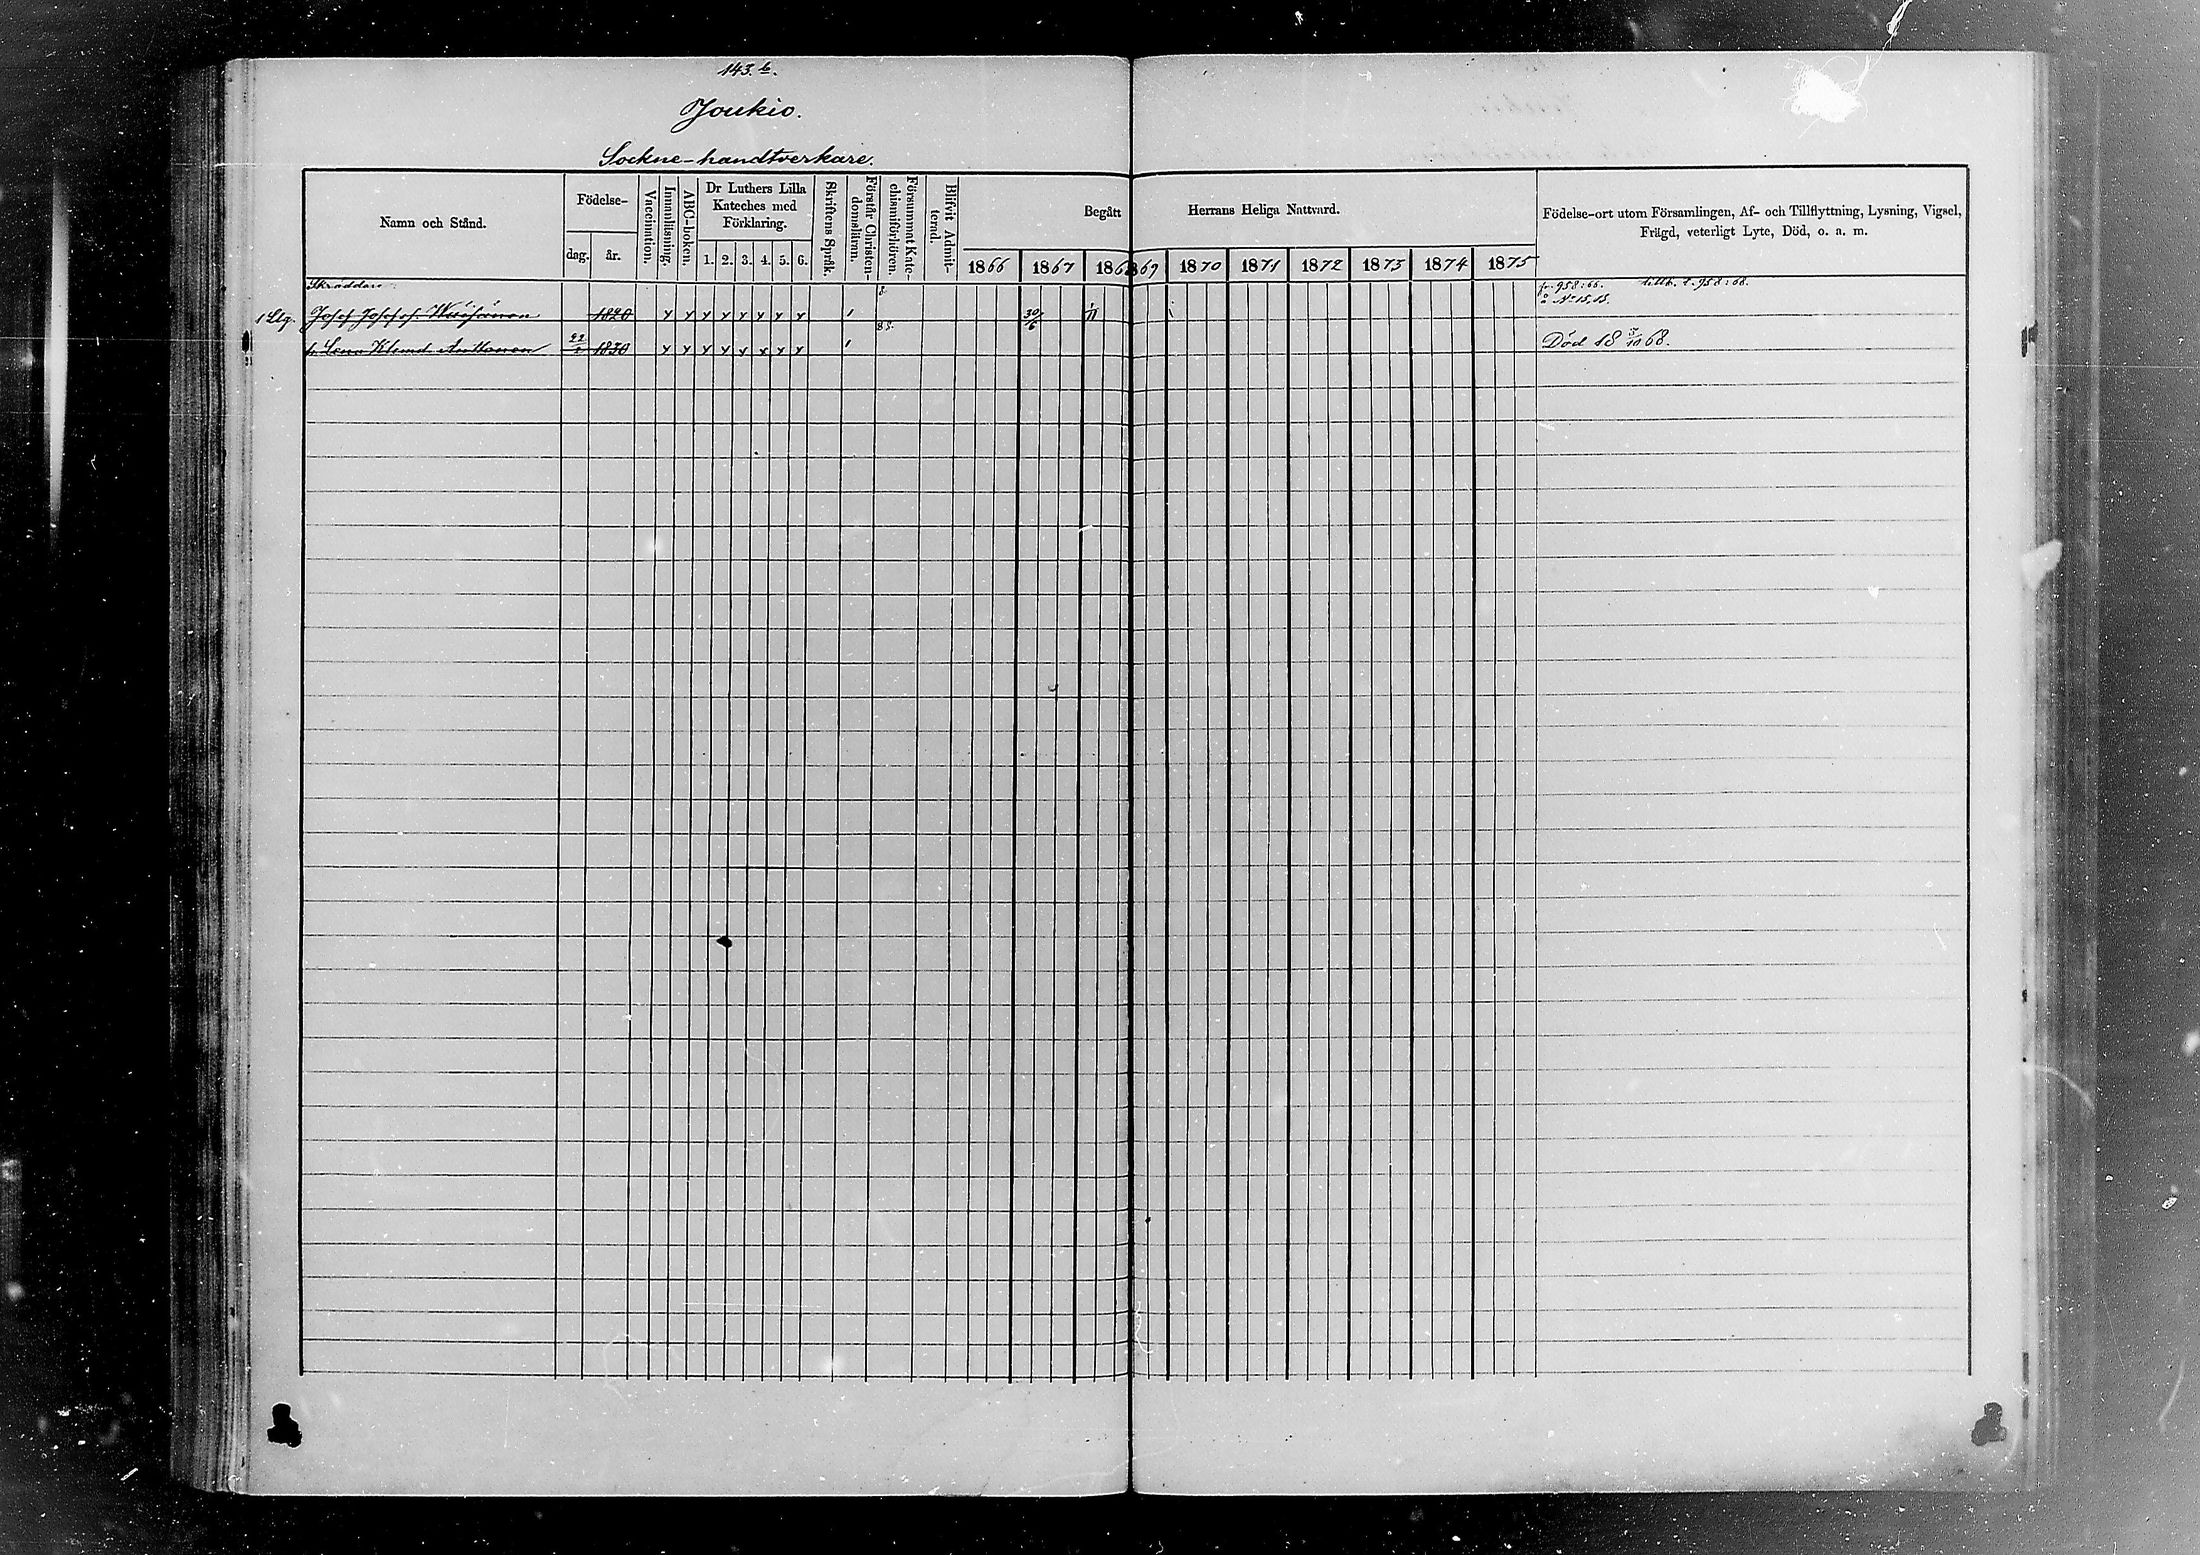 143. b.
Joukio.
Sockne-handtverkare.
Namn och Stånd.
Födelse-
dag.
år.
Vaccination.
Innanläsning.
ABC-boken.
Dr Luthers Lilla
Kateches med
Förklaring.
1. 2. 3. 4. 5. 6.
Skriftens Språk.
Förstår Christen-
domsläran.
Försummat Kate-
chismiförhören.
Blifvit Admit-
terad.
Begått Herrans Heliga Nattvard.
1866 1867 1868 69 1870 1871 1872 1873 1874 1875
Födelse-ort utom Församlingen, Af- och Tillflyttning, Lysning, Vigsel,
Frägd, veterligt Lyte, Död, o. a. m.
Skräddare
fr. 958:66. tillb. t. 958:68.
1 Llg. Josef Josefsf. 1820 y y y y y y y y 30/6 1/11 å No 15, 15.
h. Lena Klemd. Anttonen 1830 y y y y y y y y Död 18 5/10 68.